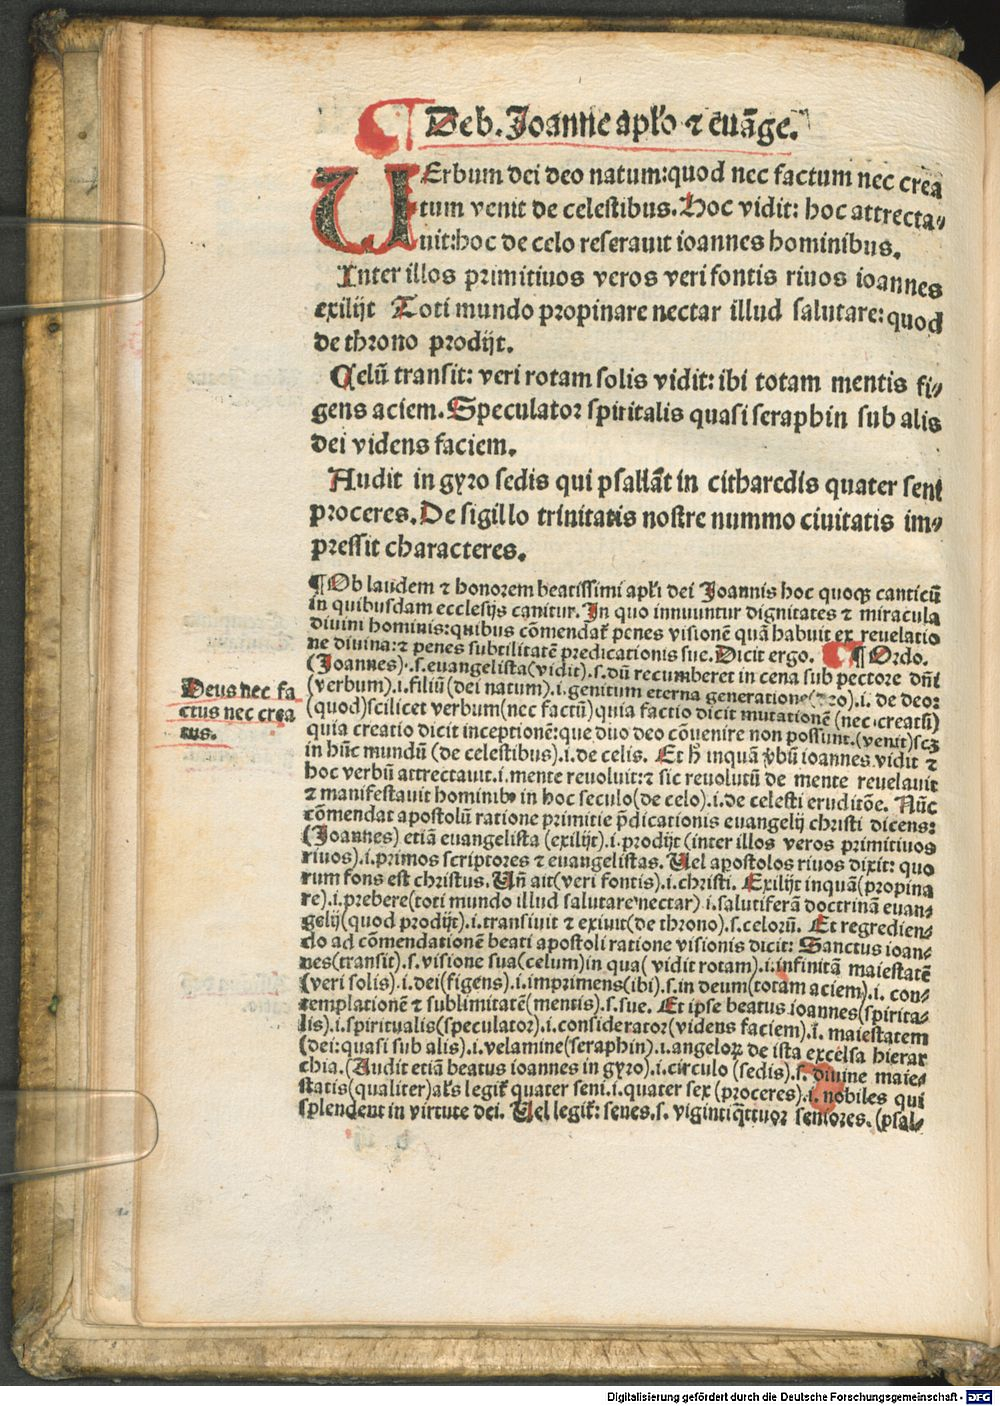 ¶ De b. Joanne aplo ⁊ euāge.
VErbum dei deo natum: quod nec factum nec crea
tum venit de celestibus. Hoc vidit: hoc attrecta-
uit: hoc de celo reserauit ioannes hominibus.
Inter illos primitiuos veros veri fontis riuos ioannes
exilijt Toti mundo propinare nectar illud salutare: quod
de throno prodijt.
Celū transit: veri rotam solis vidit: ibi totam mentis fi-
gens aciem. Speculator spiritalis quasi seraphin sub alis
dei videns faciem.
Audit in gyro sedis qui psallāt in citharedis quater seni
proceres. De sigillo trinitatis nostre nummo ciuitatis im-
pressit characteres.
¶ Ob laudem ⁊ honorem beatissimi apli dei Joannis hoc quoqꝫ canticū
in quibusdam ecclesijs canitur. In quo innuuntur dignitates ⁊ miracula
diuini hominis: quibus cōmendat̄ penes visionē quā habuit ex reuelatio
ne diuina: ⁊ penes subtilitatē predicationis sue. Dicit ergo. ¶ Ordo.
(Joannes) .s. euangelista (vidit) .s. dū recumberet in cena sub pectore dn̄i
(verbum) .i. filiū (dei natum) .i. genitum eterna generatione (deo) .i. de deo:
(quod) scilicet verbum (nec factū) quia factio dicit mutationē (nec creatū)
quia creatio dicit inceptionē: que duo deo cōuenire non possunt. (venit) scꝫ
in hūc mundū (de celestibus) .i. de celis. Et h̄ inquā v̄bū ioannes vidit ⁊
hoc verbū attrectauit .i. mente reuoluit: ⁊ sic reuolutū de mente reuelauit
⁊ manifestauit hominibꝰ in hoc seculo (de celo) .i. de celesti eruditōe. Nūc
cōmendat apostolū ratione primitie p̄dicationis euangelij christi dicens:
(Joannes) etiā euangelista (exilijt) .i. prodijt (inter illos veros primitiuos
riuos) .i. primos scriptores ⁊ euangelistas. Uel apostolos riuos dixit: quo
rum fons est christus. Un̄ ait (veri fontis) .i. christi. Exilijt inquā (propina
re) .i. prebere (toti mundo illud salutare nectar) .i. salutiferā doctrinā euan-
gelij (quod prodijt) .i. transiuit ⁊ exiuit (de throno) .s. celorū. Et regredien-
do ad cōmendationē beati apostoli ratione visionis dicit: Sanctus ioan-
nes (transit) .s. visione sua (celum) in qua (vidit rotam) .i. infinitā maiestatē
(veri solis) .i. dei (figens) .i. imprimens (ibi) .s. in deum (totam aciem) .i. con-
templationē ⁊ sublimitatē (mentis) .s. sue. Et ipse beatus ioannes (spirita-
lis) .i. spiritualis (speculator) .i. considerator (videns faciem) .i. maiestatem
(dei: quasi sub alis) .i. velamine (seraphin) .i. angeloꝝ de ista excelsa hierar
chia. (Audit etiā beatus ioannes in gyro) .i. circulo (sedis) .s. diuine maie-
statis (qualiter) als legit̄ quater seni .i. quater sex (proceres) .i. nobiles qui
splendent in virtute dei. Uel legit̄: senes .s. viginti q̄ttuor seniores. (psal-
Deus nec fa
ctus nec crea
tus.
Digitalisierung gefördert durch die Deutsche Forschungsgemeinschaft - DFG